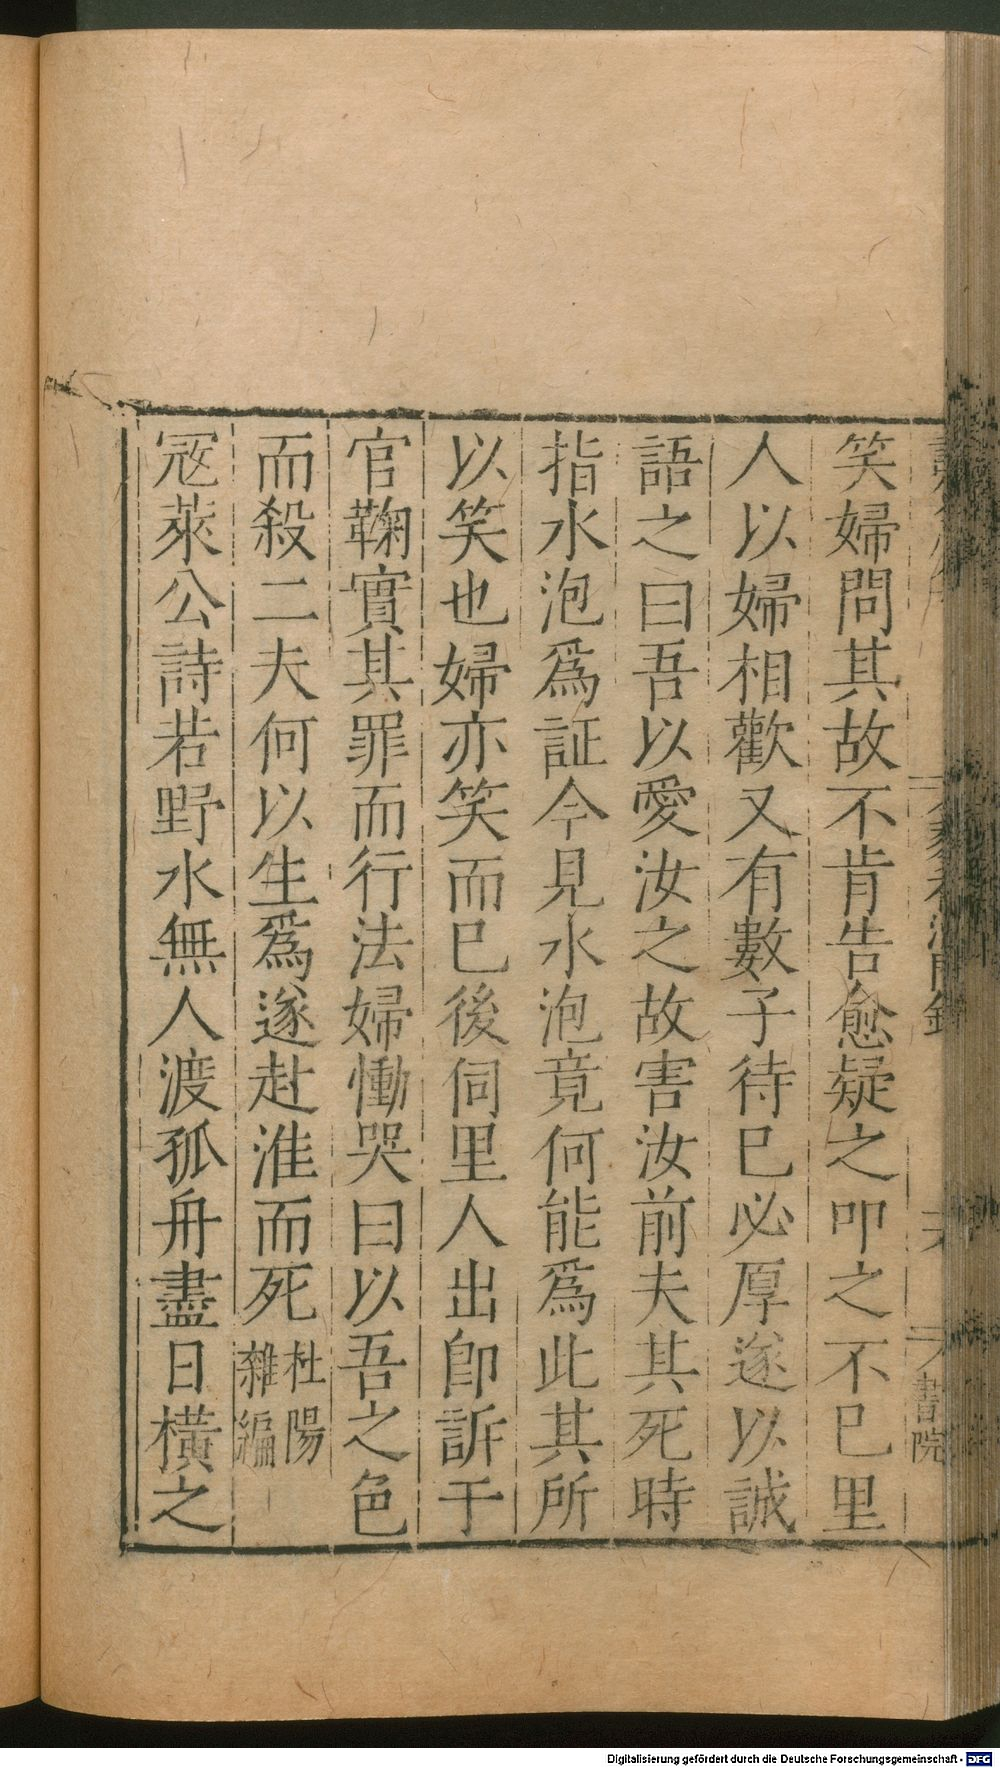 笑婦問其故不肯告愈疑之叩之不已里
人以婦相歡又有數子待已必厚遂以誠
語之曰吾以愛汝之故害汝前夫其死時
指水泡爲証今見水泡竟何能爲此其所
以笑也婦亦笑而已後伺里人出卽訴于
官鞠實其罪而行法婦慟哭曰以吾之色
而殺二夫何以生爲遂赴淮而死杜陽雜編
冦萊公詩若野水無人渡孤舟盡日橫之
書院
Digitalisierung gefördert durch die Deutsche Forschungsgemeinschaft - DFG